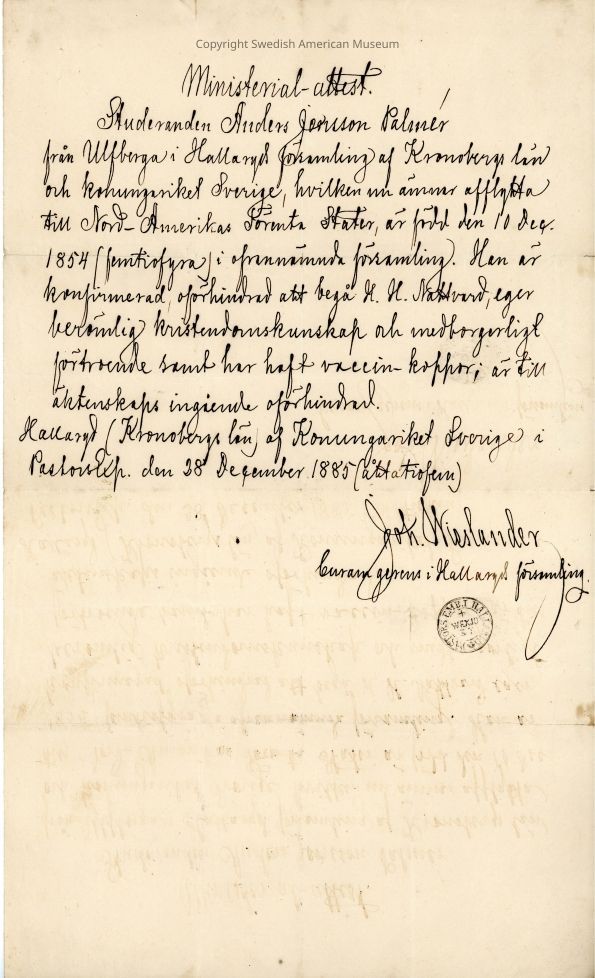 Copyright Swedish American Museum
Ministerial-attest.
Studeranden Anders Jonsson Palmér
från Ulfberga i Hallaryds församling af Kronobergs län
och konungariket Sverige, hvilken nu ämnar afflytta
till Nord-Amerikas Förenta Stater, är född den 10 Dec.
1854 (femtiofyra) i ofvannämnda församling. Han är
konfirmerad, oförhindrad att begå H. H. Nattvard, eger
berömlig kristendomskunskap och medborgerligt
förtroende samt har haft vaccin-koppor; är till
äktenskaps ingående oförhindrad.
Hallaryd (Kronobergs län) af Konungariket Sverige i
Pastorsexp. den 28 December 1885 (åttatiofem)
Joh. Wieslander
Curam gerens i Hallaryds församling.